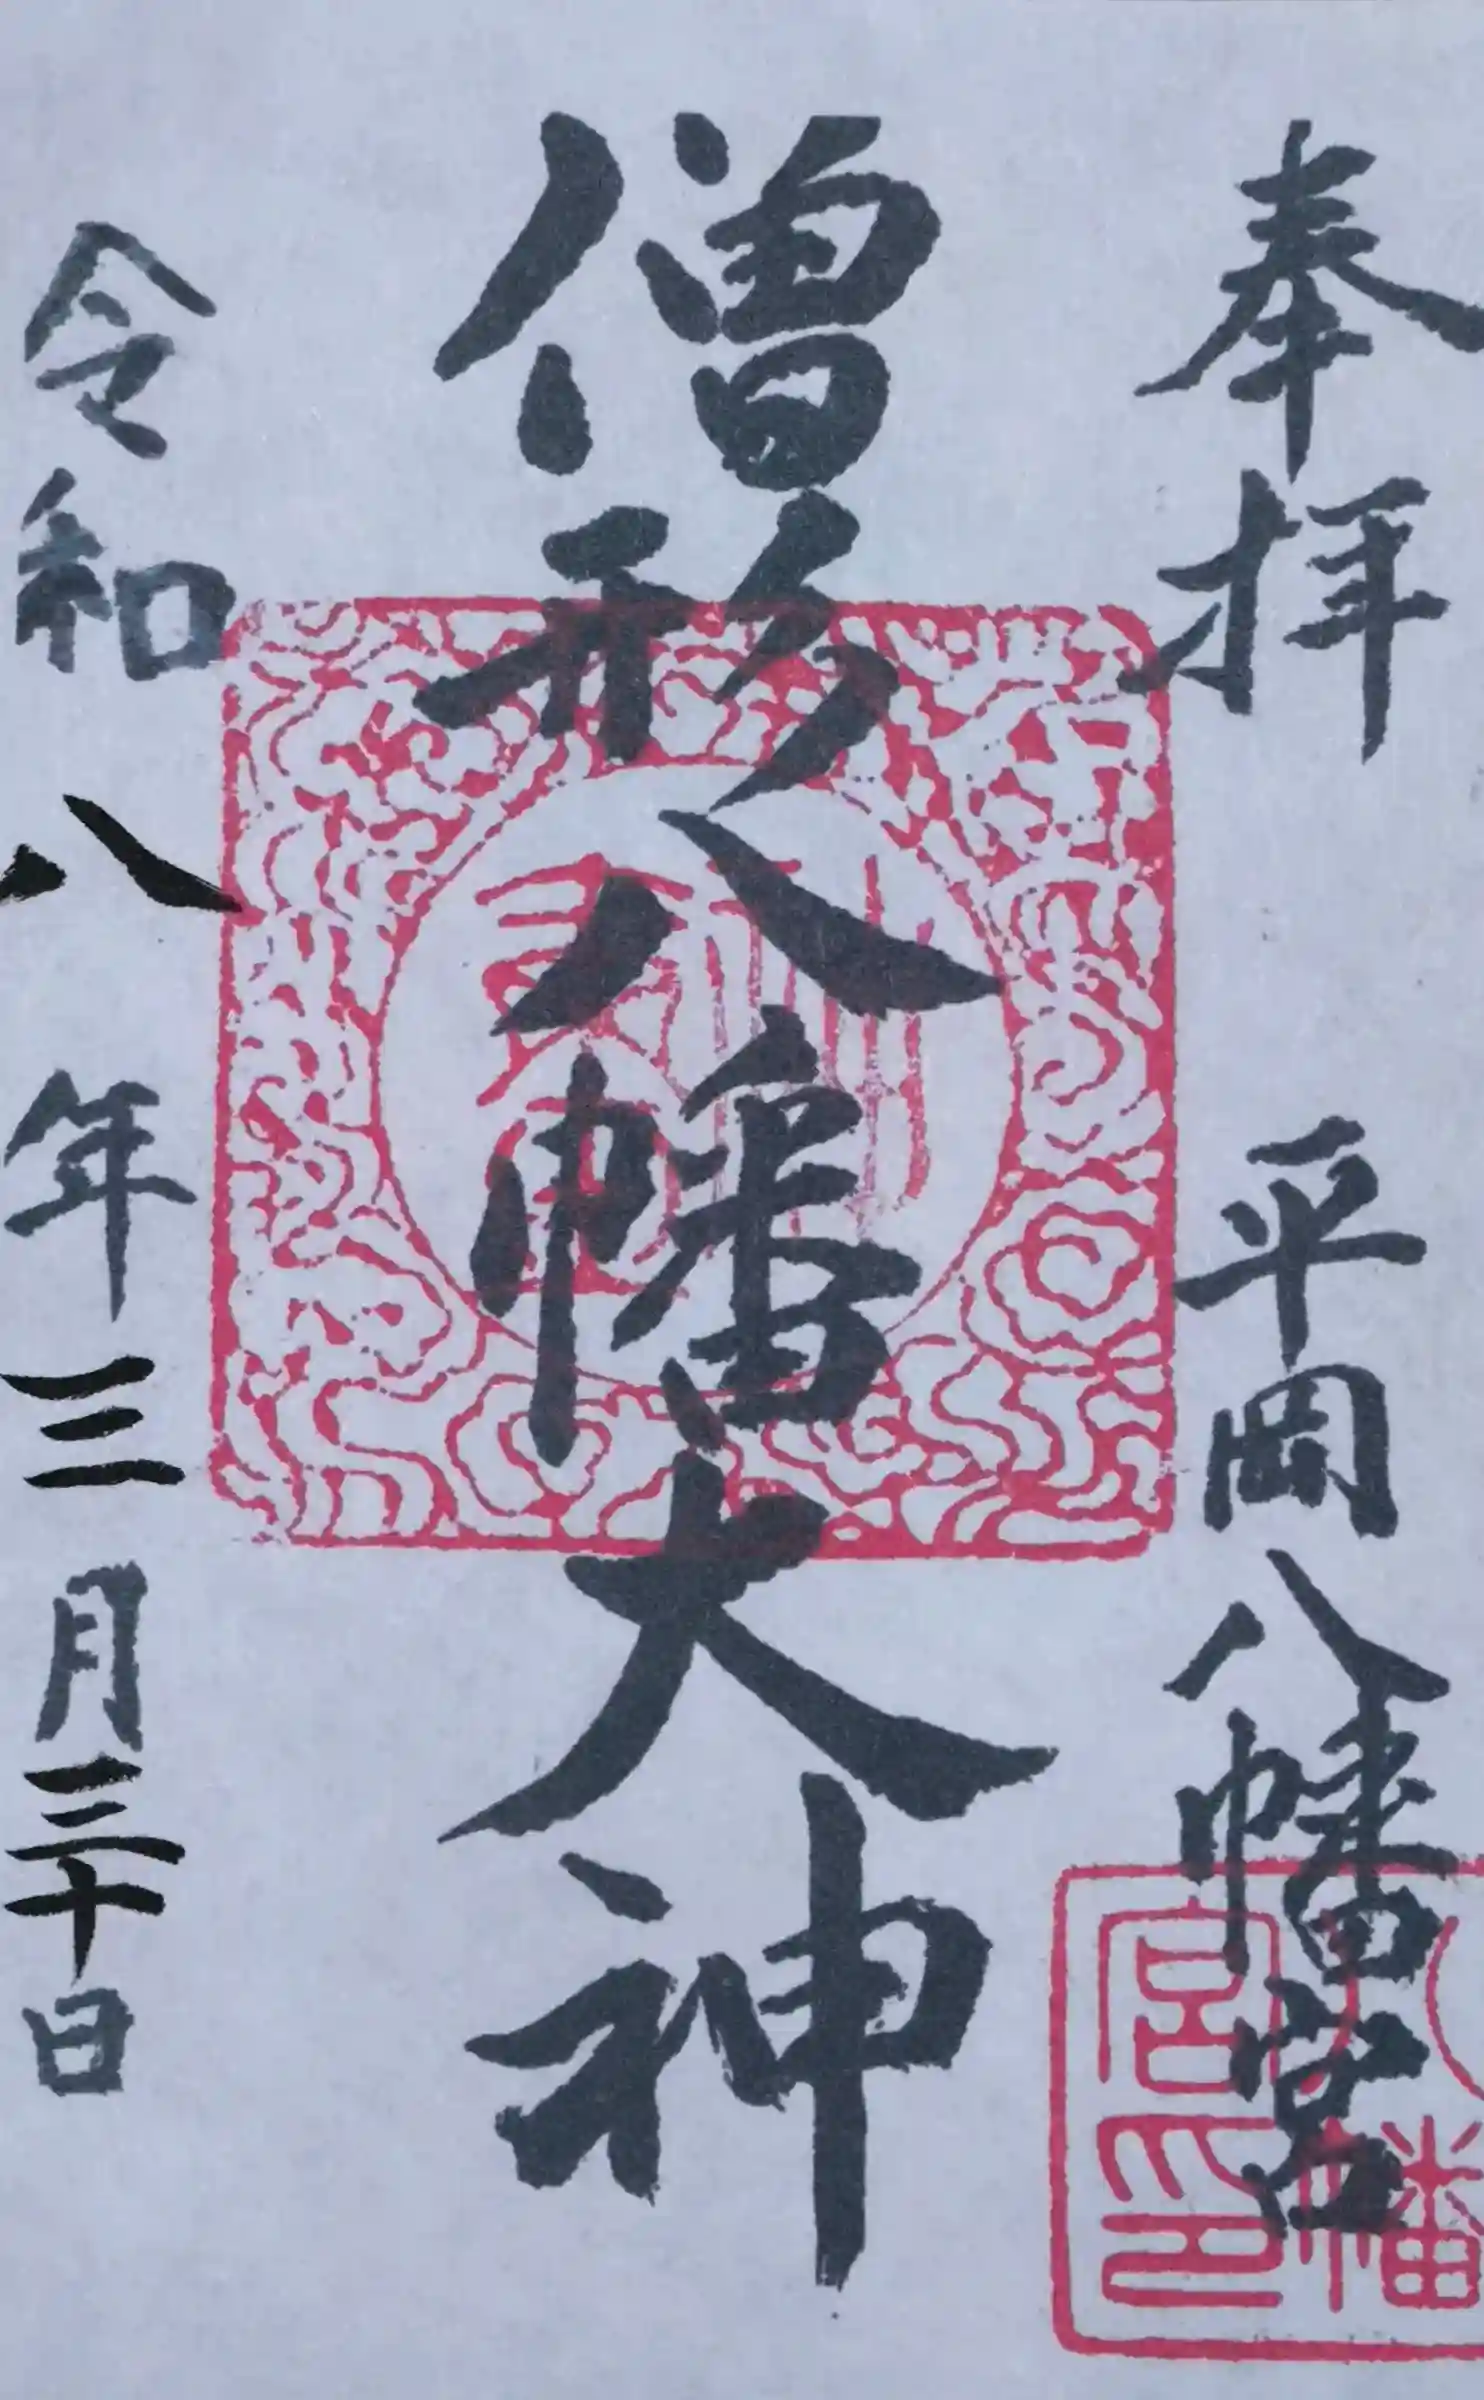 奉拝 平岡八幡宮
僧形八幡大神
令和八年三月三十日
八幡
宮印